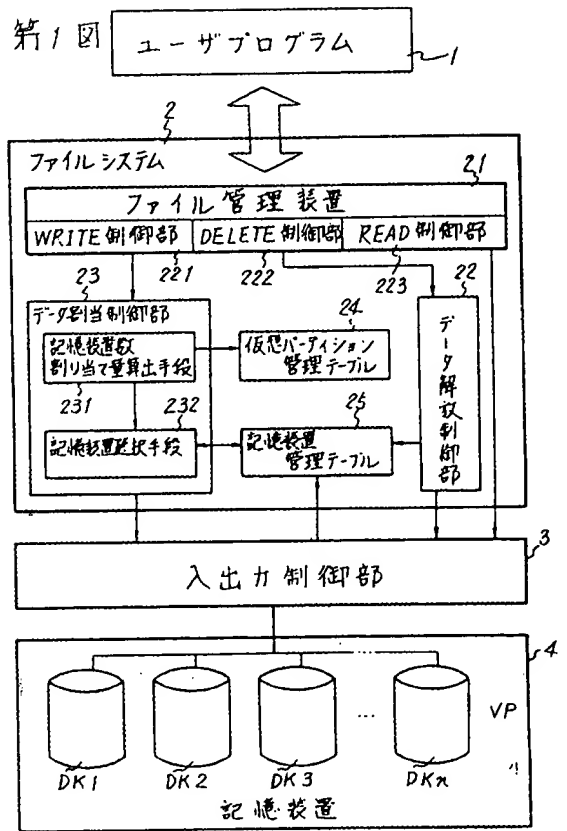 第1図
ユーザプログラム
1
2
ファイルシステム
21
ファイル管理装置
WRITE制御部 DELETE制御部 READ制御部
23 221 222 223 22
データ割当制御部
記憶装置数
割り当て量算出手段
231
24
仮想パーティション
管理テーブル
232
記憶装置選択手段
25
記憶装置
管理テーブル
データ解放制御部
3
入出力制御部
4
VP
DK1 DK2 DK3 ... DKn
記憶装置